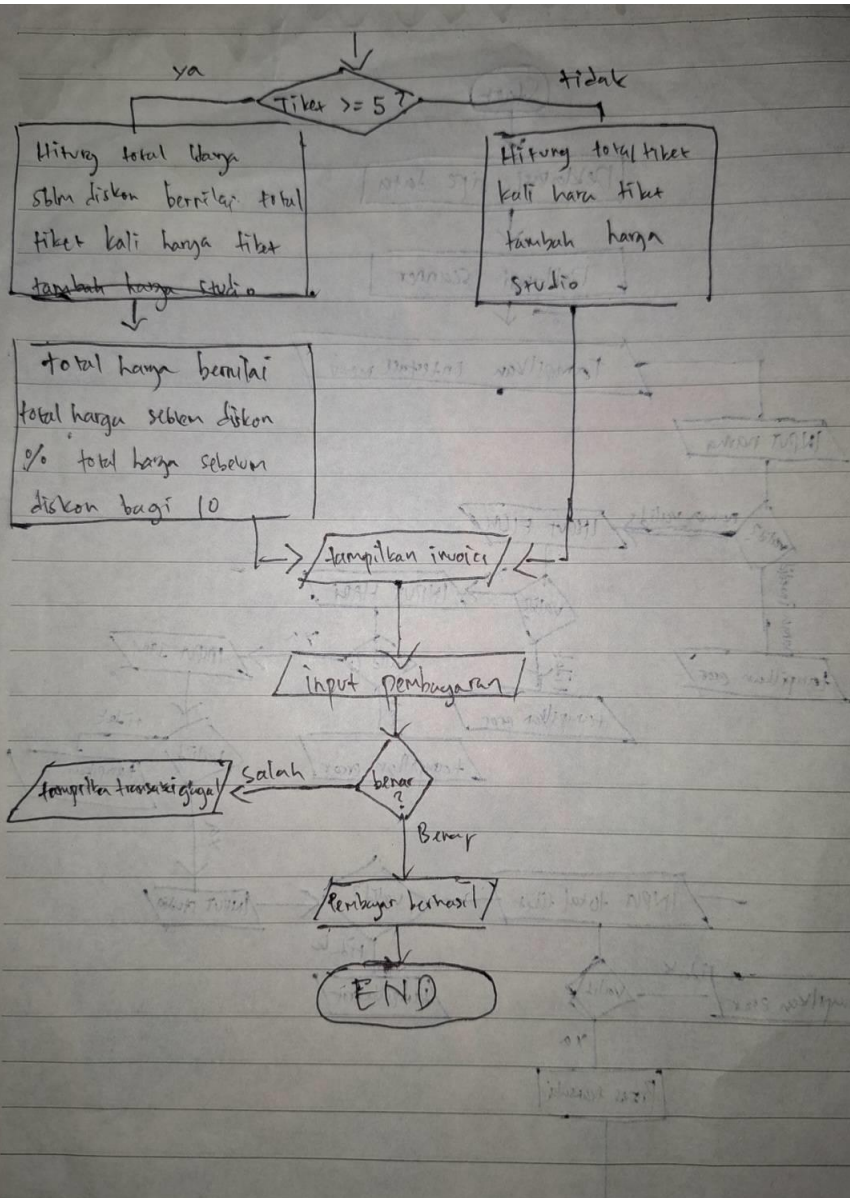 ya
tidak
Tiket >= 5 ?
Hitung total harga
sblm diskon bernilai total
tiket kali harga tiket
tambah harga studio
Hitung total tiket
kali hara tiket
tambah harga
studio
total harga bernilai
total harga seblem diskon
% total harga sebelum
diskon bagi 10
tampilkan invoice
input pembayaran
benar
?
Salah
tampilka transaksi gagal
Benar
Pembayar berhasil
END